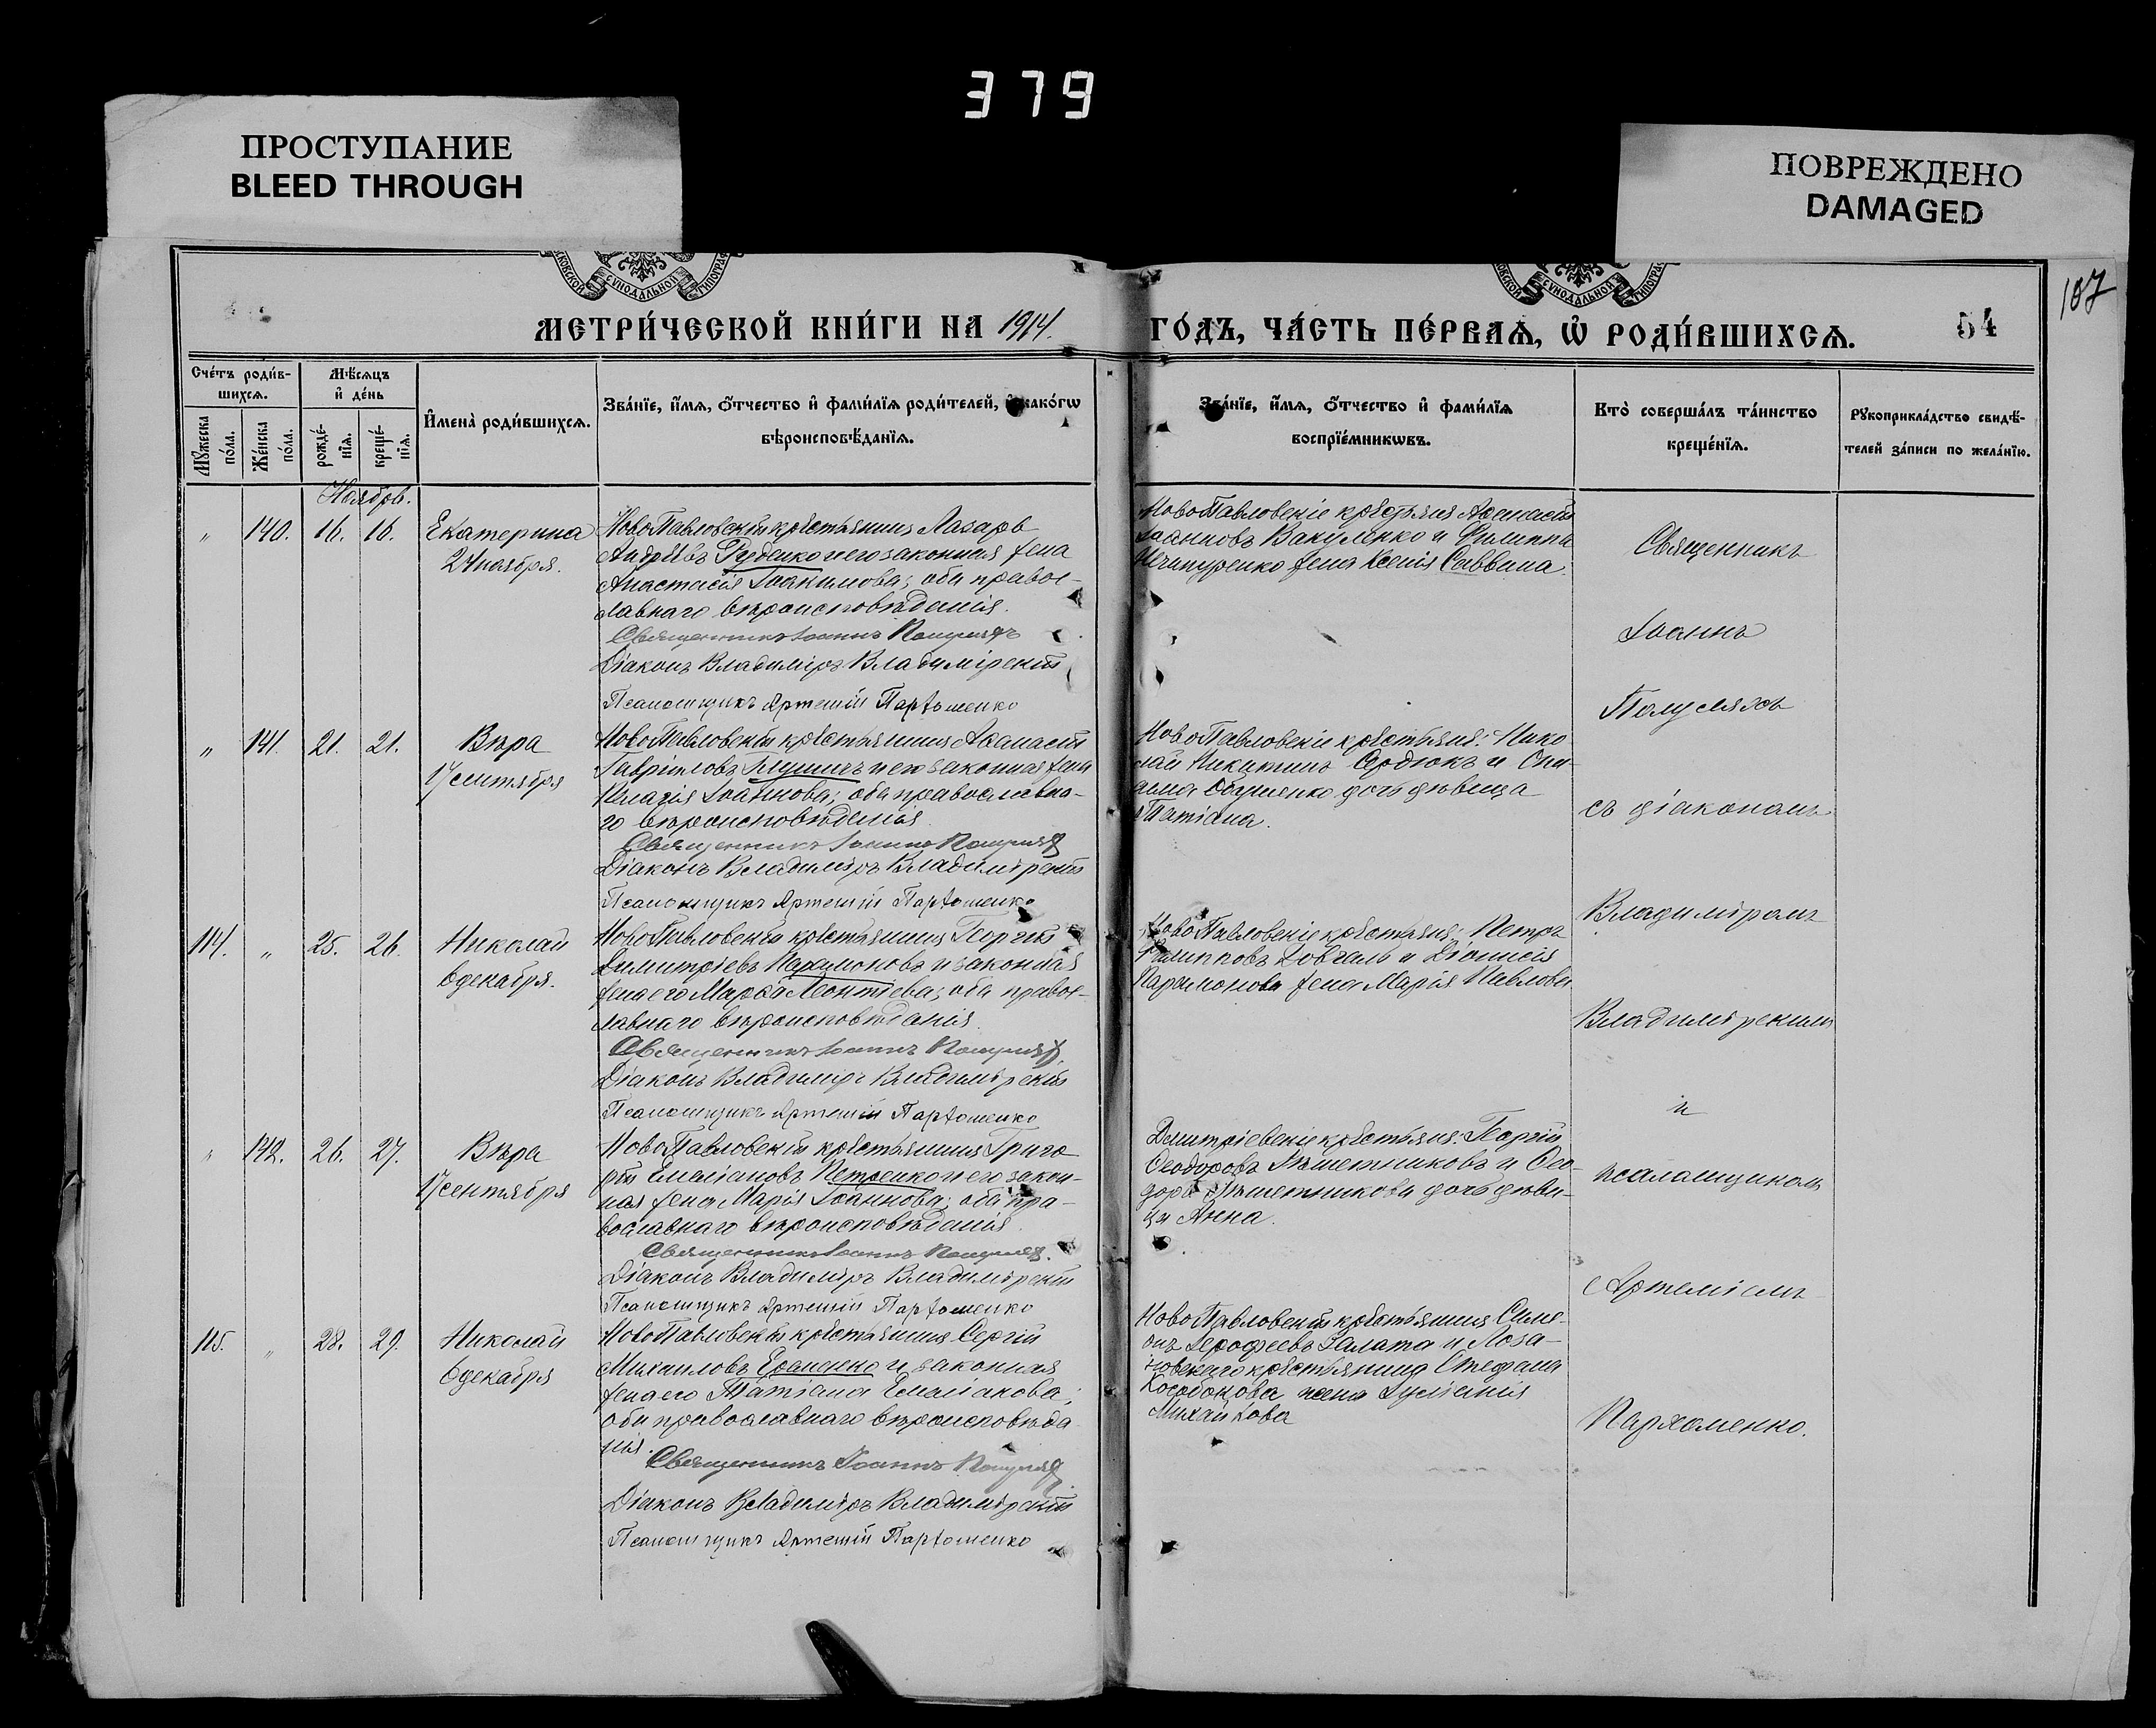 379
ПРОСТУПАНИЕ
BLEED THROUGH
ПОВРЕЖДЕНО
DAMAGED
107
МЕТРИ́ЧЕСКОЙ КНИ́ГИ НА 1914.
ГО́ДЪ, ЧА́СТЬ ПЕ́РВАѦ, Ѡ҆ РОДИ́ВШИХСѦ.
54
Сче́тъ роди́в-
шихсѧ.
Мѣ́сѧцъ
и҆ де́нь
Мꙋ́жеска
по́ла.
Же́нска
по́ла.
рожде́-
нїѧ.
креще́-
нїѧ.
И҆мена̀ роди́вшихсѧ.
Зва́нїе, и҆́мѧ, ѻ҆́тчество и҆ фами́лїѧ роди́телей, и҆ како́гѡ
вѣроисповѣ́данїѧ.
Зва́нїе, и҆́мѧ, ѻ҆́тчество и҆ фами́лїѧ
воспрїе́мникѡвъ.
Кто̀ соверша́лъ та́инство
креще́нїѧ.
Рꙋкоприкла́дство свидѣ́-
телей за́писи по жела́нїю.
Ноябрь.
" 140. 16. 16. Екатерина
24 ноября.
НовоПавловскій крестьянинъ Лазарь
Андреевъ Руденко и его законная жена
Анастасія Іоакимова; оба правос-
лавнаго вѣроисповѣданія.
Священникъ Іоаннъ Полуляхъ
Діаконъ Владиміръ Владимірскій
Псаломщикъ Артемій Пархоменко
НовоПавловскіе крестьяне Аѳанасій
Іоанновъ Вакуленко и Филиппа
Нечипуренко жена Ксенія Саввина.
" 141. 21. 21. Вѣра
17 сентября
НовоПавловскій крестьянинъ Аѳанасій
Гавріиловъ и его законная жена
Пелагія Іоаннова; оба православна-
го вѣроисповѣданія.
Священникъ Іоаннъ Полуляхъ
Діаконъ Владиміръ Владимірскій
Псаломщикъ Артемій Пархоменко
НовоПавловскіе крестьяне: Нико-
лай Никитинъ Сердюкъ и
дочь дѣвица
Татіана.
114. " 25. 26. Николай
6 декабря.
НовоПавловскій крестьянинъ Георгій
Димитріевъ Парамоновъ и законная
жена его Марѳа Леонтіева; оба правос-
лавнаго вѣроисповѣданія.
Священникъ Іоаннъ Полуляхъ
Діаконъ Владиміръ Владимірскій
Псаломщикъ Артемій Пархоменко
НовоПавловскіе крестьяне: Петръ
Филипповъ Довгаль и Діонисія
Парамонова жена Марія Павлова
" 142. 26. 27. Вѣра
17 сентября
НовоПавловскій крестьянинъ Григо-
рій Емеліановъ Петренко и его закон-
ная жена Марія Іоаннова; оба пра-
вославнаго вѣроисповѣданія.
Священникъ Іоаннъ Полуляхъ.
Діаконъ Владиміръ Владимірскій
Псаломщикъ Артемій Пархоменко
Димитріевскіе крестьяне: Георгій
Ѳеодоровъ Рѣшетниковъ и Ѳео-
дора Рѣшетникова дочь дѣви-
ца Анна.
115. " 28. 29. Николай
6 декабря
НовоПавловскій крестьянинъ Сергій
Михаиловъ Еременко и законная
жена его Татіана Емеліанова;
оба православнаго вѣроисповѣда-
нія.
Священникъ Іоаннъ Полуляхъ
Діаконъ Владиміръ Владимірскій
Псаломщикъ Артемій Пархоменко
НовоПавловскій крестьянинъ Симе-
онъ Іерофеевъ Салата и Лоза-
новскаго крестьянина Стефана
Кособокова жена
Михайлова
Священникъ
Іоаннъ
Полуляхъ
съ діакономъ
Владиміромъ
Владимірскимъ
и
псаломщикомъ
Артеміемъ
Пархоменко.